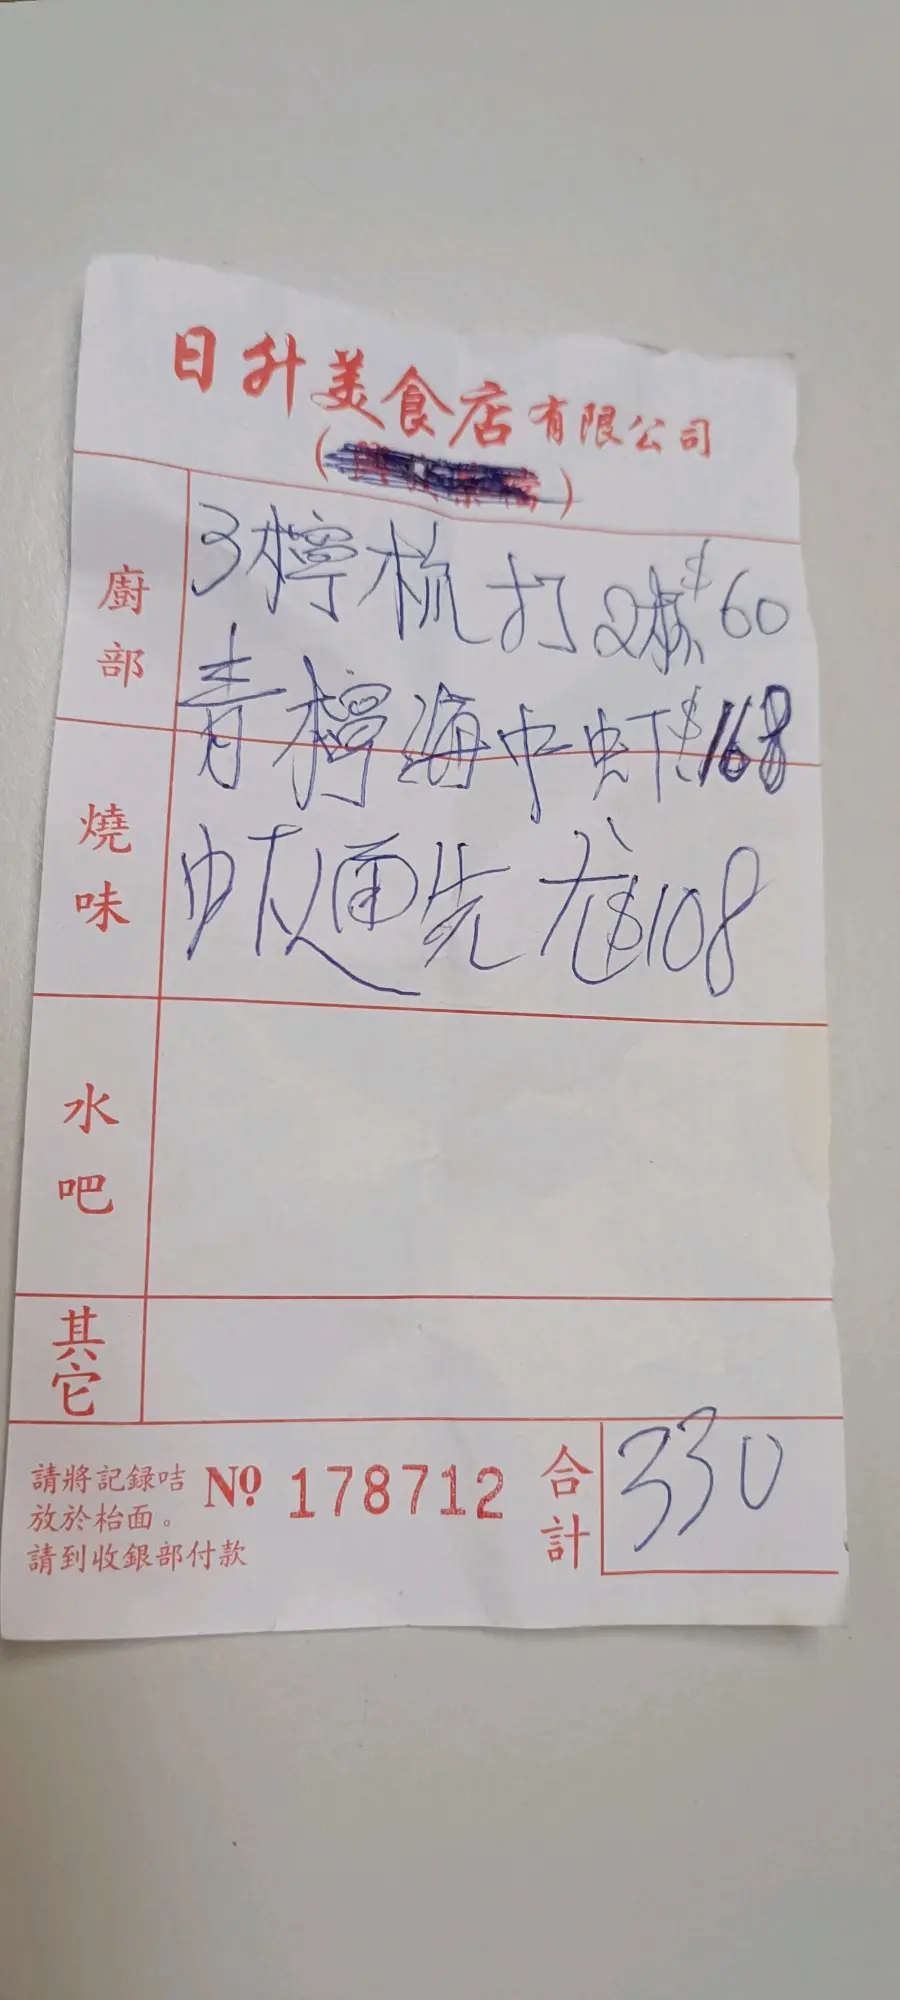 日升美食店有限公司
廚部
3檸梳打 2枝 $60
青檸海中虾 $168
燒味
$108
水吧
其它
請將記録咭
放於枱面。
請到收銀部付款
Nº 178712
合計 330